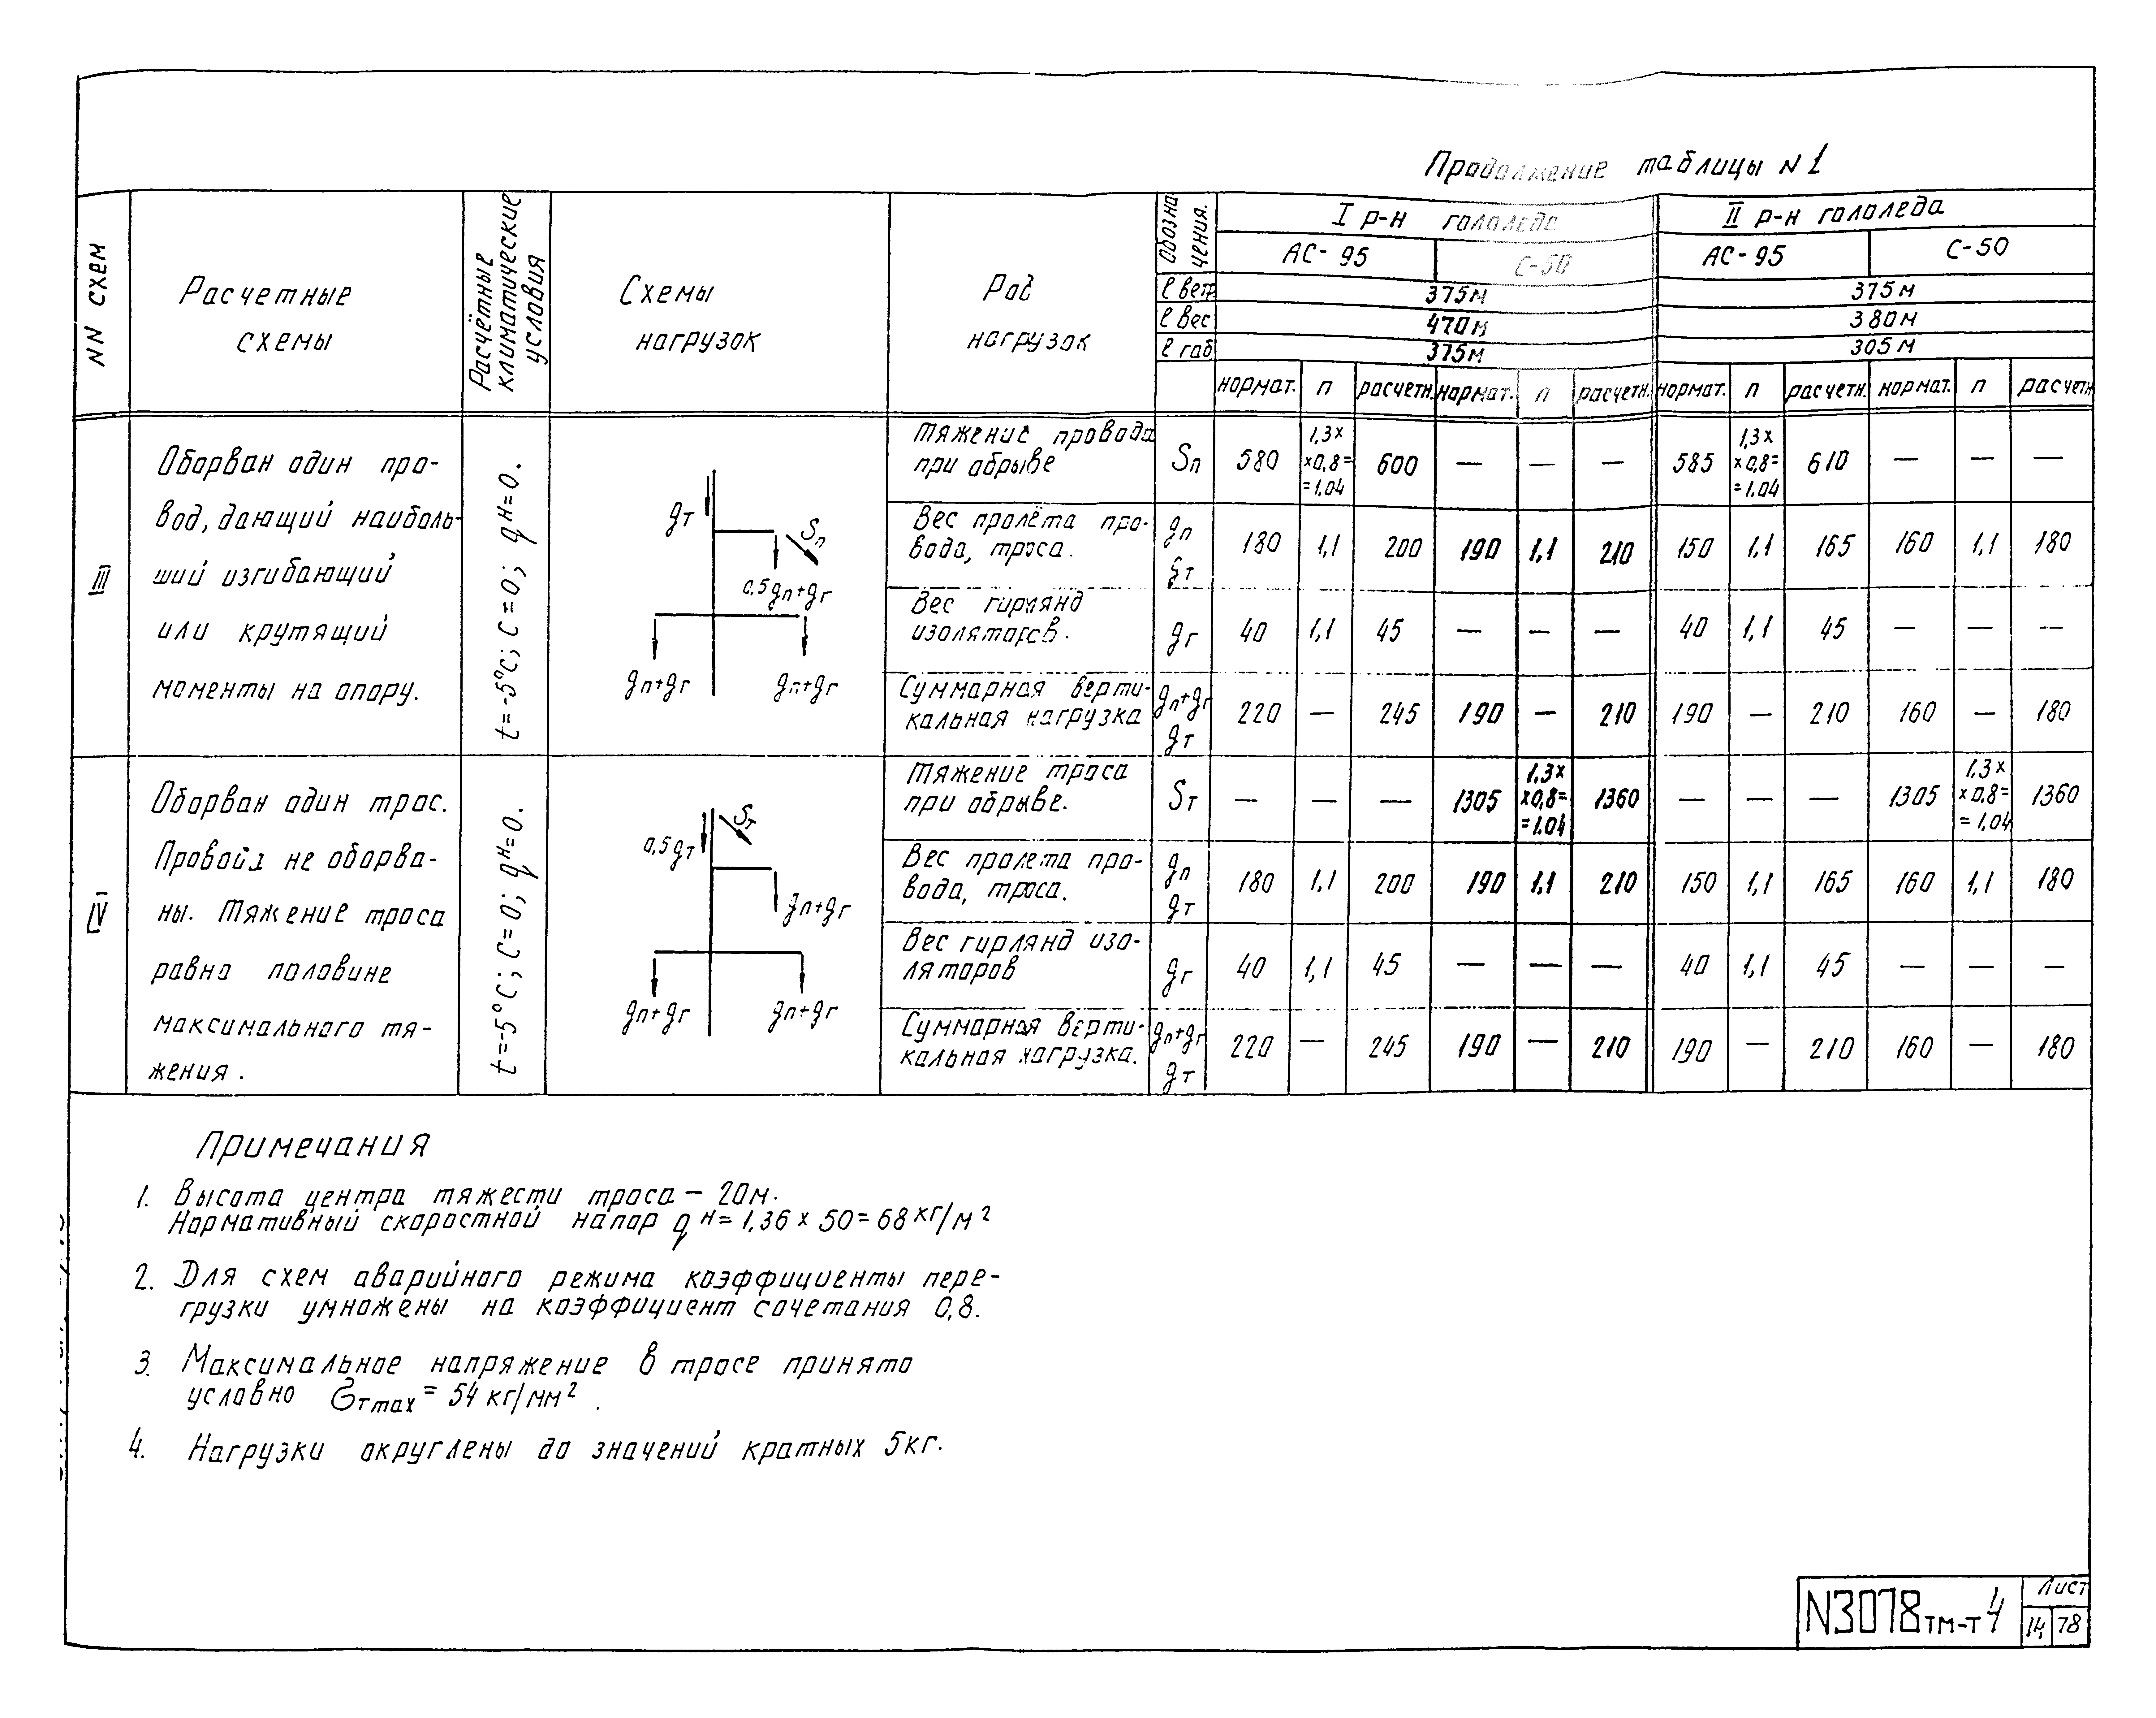 Продолжение таблицы N 1
NN схем
Расчетные схемы
Расчётные климатические условия
Схемы нагрузок
Род нагрузок
Обозначения.
I р-н гололеда
II р-н гололеда
АС-95
С-50
АС-95
С-50
ℓ ветр.
375м
375м
ℓ вес
470м
380м
ℓ габ
375м
305м
нормат. n расчетн. нормат. n расчетн. нормат. n расчетн. нормат. n расчетн
III
Оборван один про-
вод, дающий наиболь-
ший изгибающий
или крутящий
моменты на опору.
t=-5°C; C=0; qᴴ=0.
gт
Sп
0,5gп+gг
gп+gг
gп+gг
Тяжение провода
при обрыве
Sп 580 1,3х х0,8= =1.04 600 — — — 585 1,3х х0,8= =1.04 610 — — —
Вес пролёта про-
вода, троса.
gп gт 180 1,1 200 190 1,1 210 150 1,1 165 160 1,1 180
Вес гирлянд
изоляторов.
gг 40 1,1 45 — — — 40 1,1 45 — — —
Суммарная верти-
кальная нагрузка
gп+gг gт 220 — 245 190 — 210 190 — 210 160 — 180
IV
Оборван один трос.
Провода не оборва-
ны. Тяжение троса
равно половине
максимального тя-
жения.
t=-5°C; C=0; qᴴ=0.
Sт
0,5gт
gп+gг
gп+gг
gп+gг
Тяжение троса
при обрыве.
Sт — — — 1305 1,3х х0,8= =1.04 1360 — — — 1305 1,3х х0,8= =1,04 1360
Вес пролета про-
вода, троса.
gп gт 180 1,1 200 190 1,1 210 150 1,1 165 160 1,1 180
Вес гирлянд изо-
ляторов
gг 40 1,1 45 — — — 40 1,1 45 — — —
Суммарная верти-
кальная нагрузка.
gп+gг gт 220 — 245 190 — 210 190 — 210 160 — 180
Примечания
1. Высота центра тяжести троса – 20м.
Нормативный скоростной напор qᴴ=1,36 х 50=68кг/м²
2. Для схем аварийного режима коэффициенты пере-
грузки умножены на коэффициент сочетания 0,8.
3. Максимальное напряжение в тросе принято
условно бтmax = 54 кг/мм².
4. Нагрузки округлены до значений кратных 5кг.
N3078тм-т4
Лист
14 78